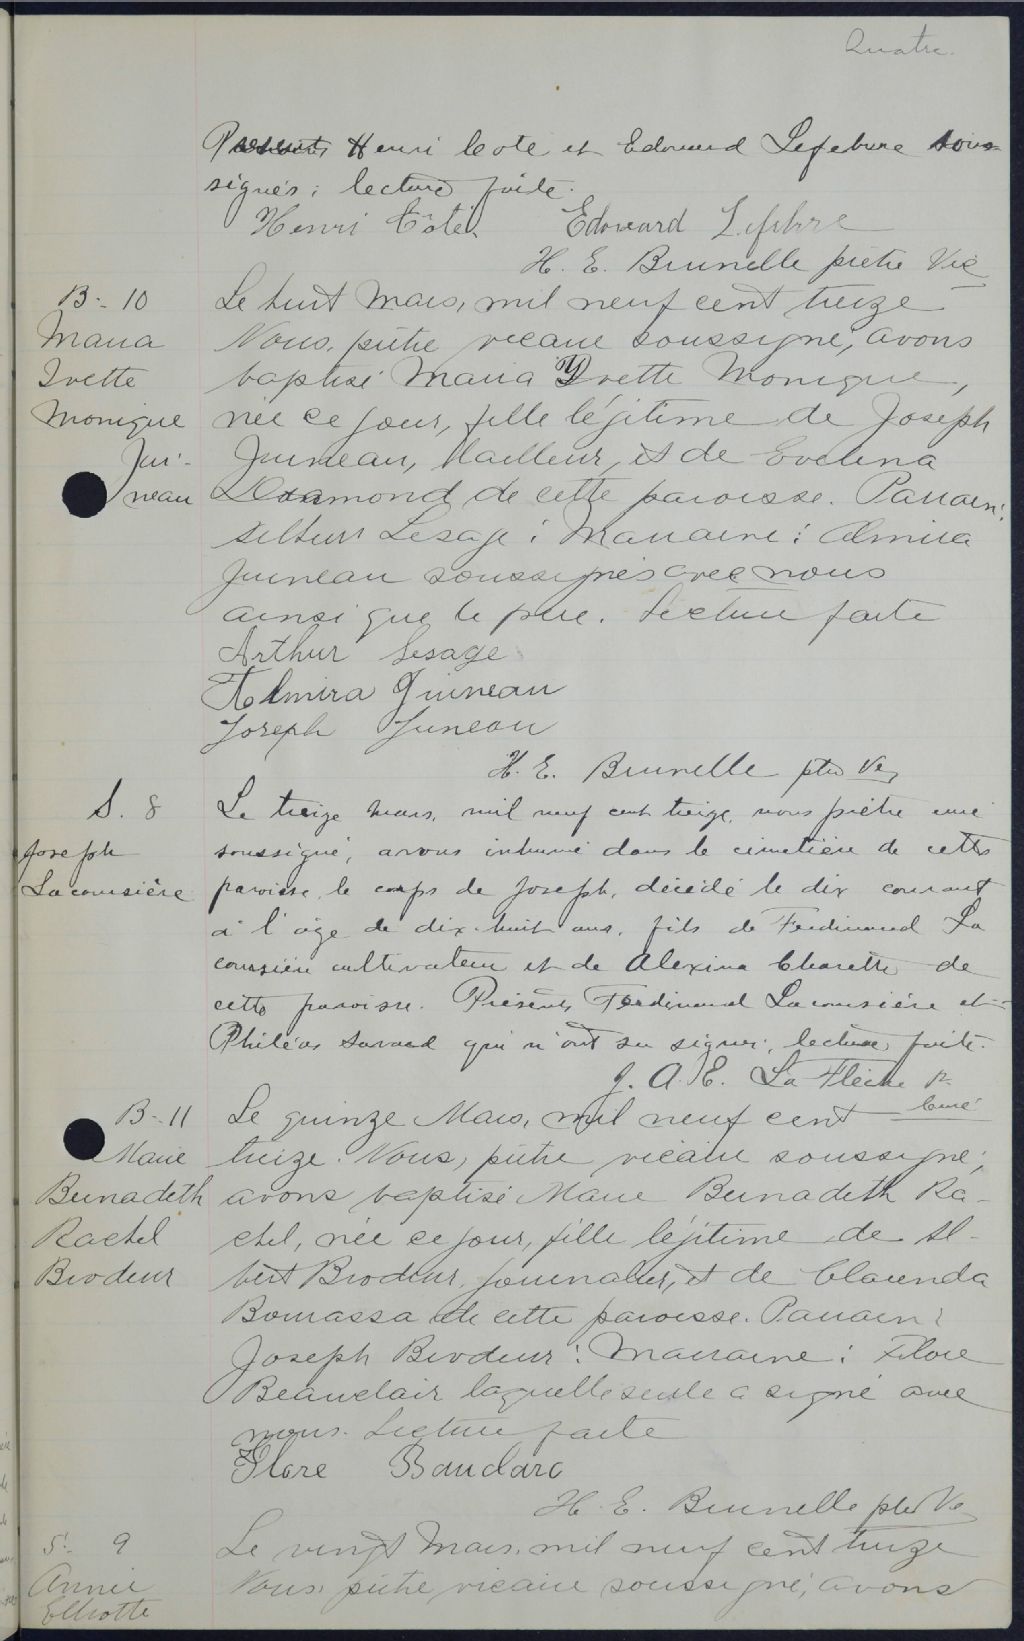 Quatre.
Presents Henri Cote et Edouard Lefebvre sous-
signés; lecture faite.
Henri Coté. Edouard Lefebvre
H. E. Brunelle prêtre Vic
B - 10
Maria
Ivette
Monique
Jui-
neau
Le huit Mars, mil neuf cent treize
Nous, prêtre vicaire soussigné, avons
baptisé Maria Yvette Monique,
née ce jour, fille légitime de Joseph
Juineau, tailleur, et de Evelina
Desamond de cette paroisse. Parrain:
Arthur Lesage; Marraine: Almira
Juineau soussignés avec nous
ainsi que le père. Lecture faite
Arthur Lesage
Almira Juineau
Joseph Juneau
H. E. Brunelle ptre Vic
S. 8
Joseph
Lacoursière
Le treize mars, mil neuf cent treize, nous prêtre curé
soussigné, avons inhumé dans le cimetière de cette
paroisse, le corps de Joseph, décédé le dix courant
à l'âge de dix-huit ans, fils de Ferdinand La
coursière cultivateur et de Alexina Charette de
cette paroisse. Présents Ferdinand Lacoursière et
Philéas Savard qui n'ont su signer; lecture faite.
J. A. E. La Flèche P.
Curé
B - 11
Marie
Bernadeth
Rachel
Brodeur
Le quinze Mars, mil neuf cent
treize. Nous, prêtre vicaire soussigné,
avons baptisé Marie Bernadeth Ra-
chel, née ce jour, fille légitime de Al-
bert Brodeur, journalier, et de Clarenda
Bourassa de cette paroisse. Parrain:
Joseph Brodeur: Marraine: Flore
Beauclair laquelle seule a signé avec
nous. Lecture faite
Flore Bauclarc
H. E. Brunelle ptre Vic
S - 9
Annie
Elliotte
Le vingt Mars, mil neuf cent treize
Nous, prêtre, vicaire soussigné, avons